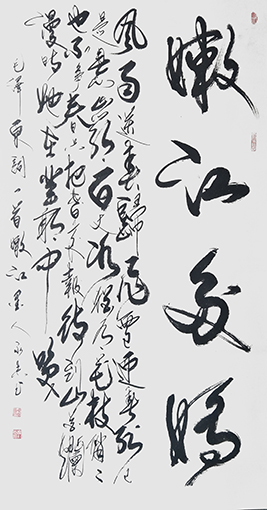 嫩江多娇
风雨送春归飞雪迎春到已
是悬崖百丈冰犹有花枝俏俏
也不争春只把春来报待到山花烂
漫时她在丛中笑
毛泽东词一首嫩江墨人